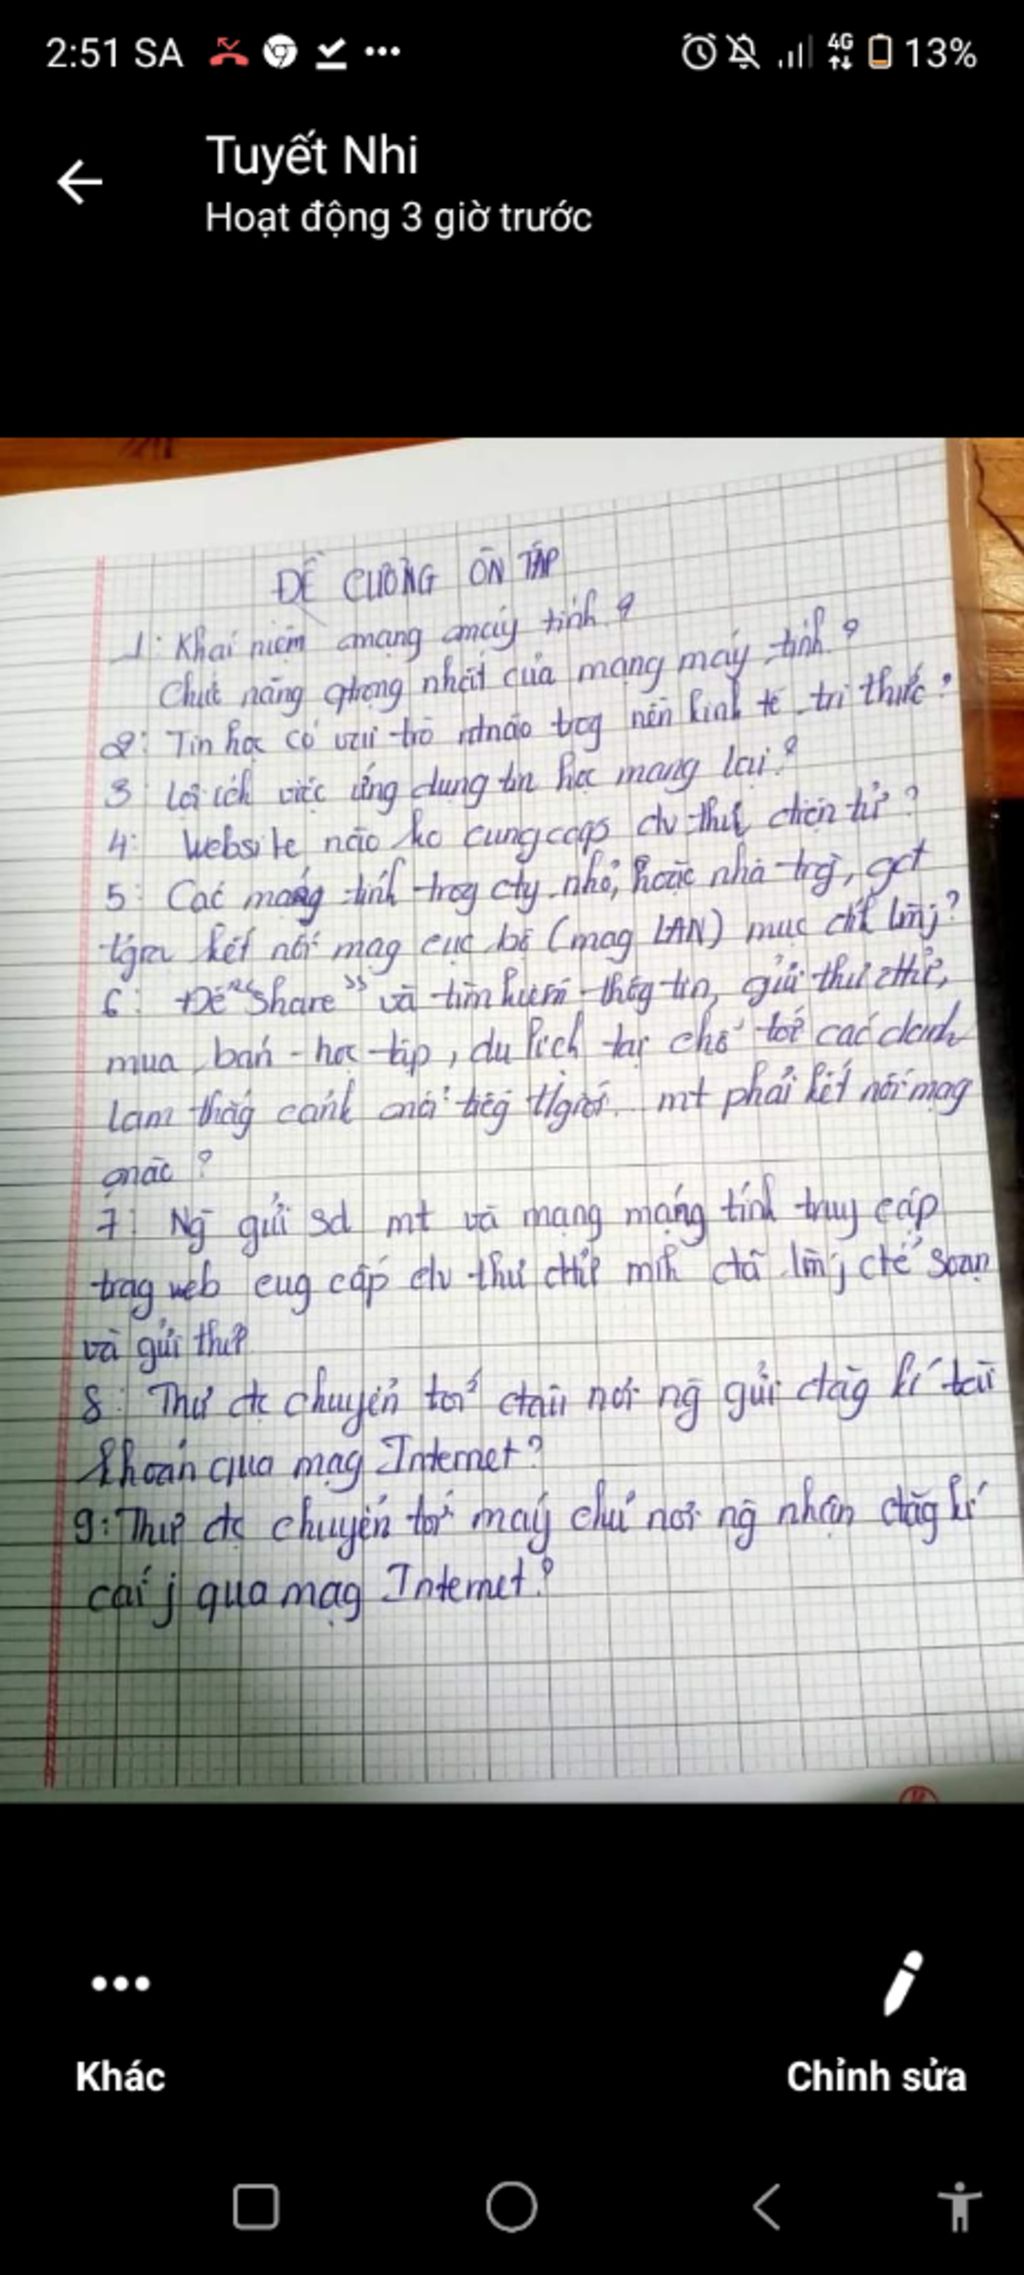 2:51 SA
4G
13%
Tuyết Nhi
Hoạt động 3 giờ trước
ĐỀ CƯƠNG ÔN TẬP
1: Khái niệm mạng máy tính?
Chức năng qtrọng nhất của mạng máy tính?
2: Tin học có vai trò ntnào trog nền kinh tế tri thức?
3 Lợi ích việc ứng dụng tin học mang lại?
4: Website nào ko cung cấp dv thư điện tử?
5: Các tính trog cty nhỏ, hoặc nhà trg,
kết nối mag cục bộ (mag LAN) mục đik
6: Để "Share" và tìm thôg tin, gửi thư
mua bán - học tập, du lịch tại chỗ tới các danh
lam thắg cảnh nổi tiếg mt phải kết nối mạg
nào?
7: Ng gửi sd mt và mạng tính truy cập
trag web cug cấp dv thư mik đã soạn
và gửi thư
8: Thư đc chuyển tới đâu nơi ng gửi đăg kí tài
khoản qua mạg Internet?
9: Thư đc chuyển tới máy chủ nơi ng nhận đăg kí
cái j qua mạg Internet?
Khác
Chỉnh sửa